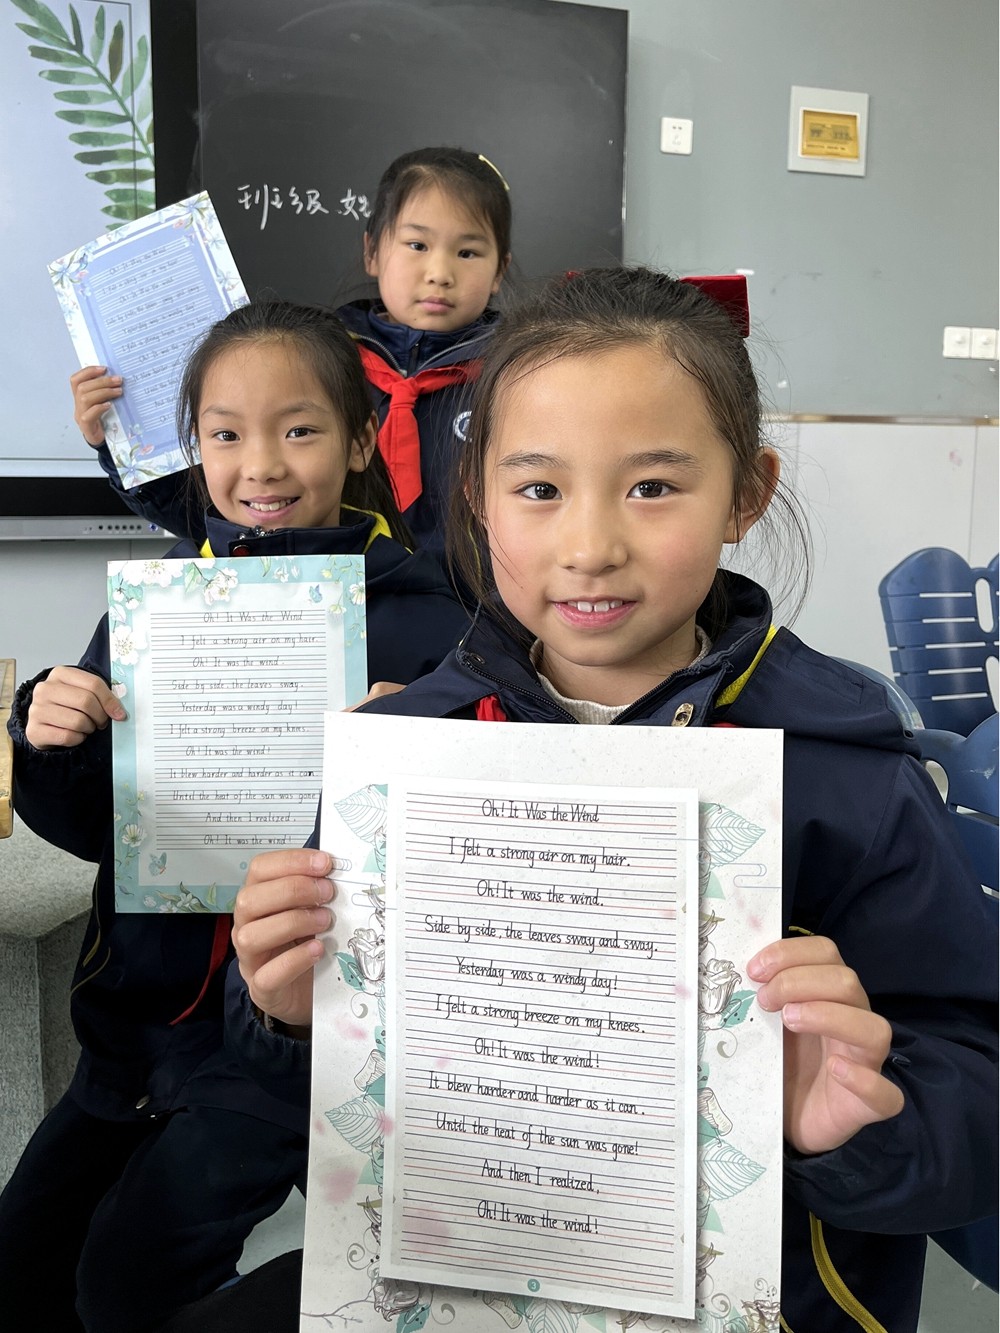 班级 姓
Oh! It Was the Wind
I felt a strong air on my hair.
Oh! It was the wind.
Side by side, the leaves sway.
Yesterday was a windy day!
I felt a strong breeze on my knees.
Oh! It was the wind!
It blew harder and harder as it can
Until the heat of the sun was gone
And then I realized,
Oh! It was the wind!
Oh! It Was the Wind
I felt a strong air on my hair.
Oh! It was the wind.
Side by side, the leaves sway and sway.
Yesterday was a windy day!
I felt a strong breeze on my knees.
Oh! It was the wind!
It blew harder and harder as it can.
Until the heat of the sun was gone!
And then I realized,
Oh! It was the wind!
3